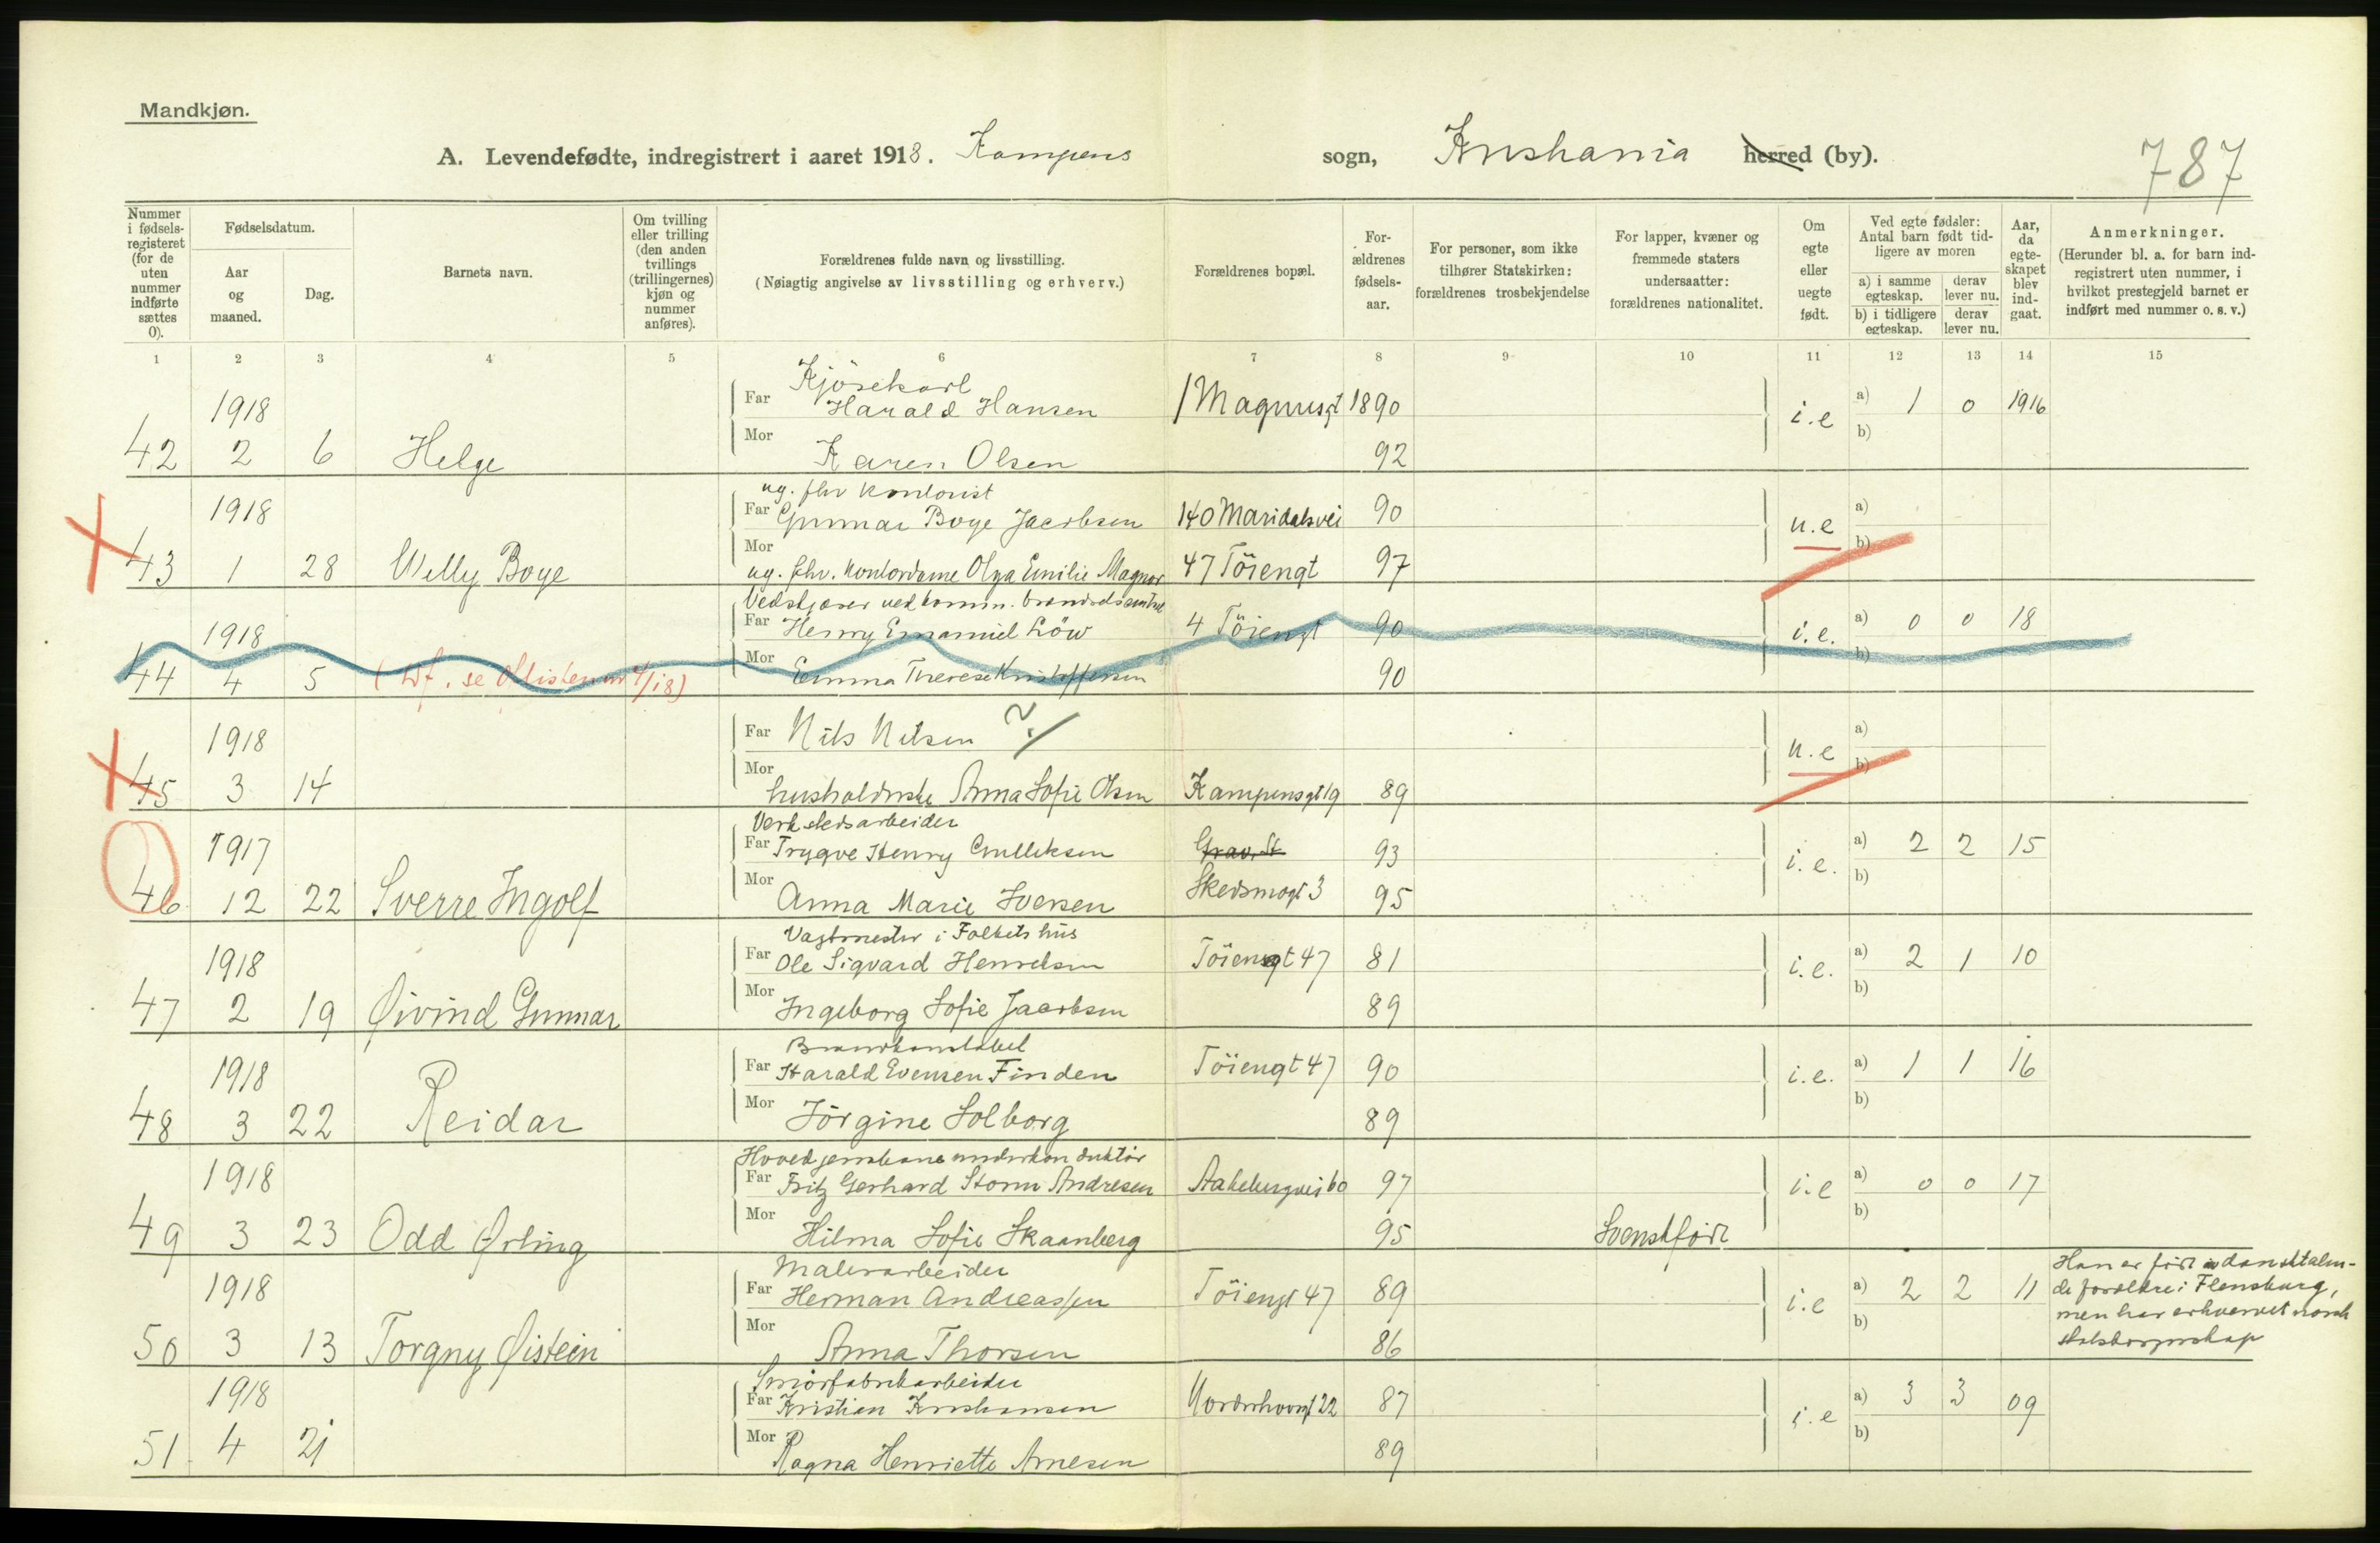 Mandkjøn.
A. Levendefødte, indregistrert i aaret 1918. Kampens sogn, Kristiania herred (by).
787
Nummer i fødsels-registeret (for de uten nummer indførte sættes 0).
Fødselsdatum.
Aar og maaned.
Dag.
Barnets navn.
Om tvilling eller trilling (den anden tvillings (trillingernes) kjøn og nummer anføres).
Forældrenes fulde navn og livsstilling.
(Nøiagtig angivelse av livsstilling og erhverv.)
Forældrenes bopæl.
For-ældrenes fødsels-aar.
For personer, som ikke tilhører Statskirken: forældrenes trosbekjendelse
For lapper, kvæner og fremmede staters undersaatter: forældrenes nationalitet.
Om egte eller uegte født.
Ved egte fødsler: Antal barn født tid-ligere av moren
a) i samme egteskap.
derav lever nu.
b) i tidligere egteskap.
derav lever nu.
Aar, da egte-skapet blev ind-gaat.
Anmerkninger.
(Herunder bl. a. for barn ind-registrert uten nummer, i hvilket prestegjeld barnet er indført med nummer o. s. v.)
1 2 3 4 5 6 7 8 9 10 11 12 13 14 15
Kjörekarl
1918 Far Harald Hansen 1 Magnusgt 1890 i.e a) 1 0 1916
42 2 6 Helge Mor Karen Olsen 92 b)
ug. fhv kontorist
1918 Far Gunnar Boye Jacobsen 140 Maridalsvei 90 u.e a)
43 1 28 Willy Boye Mor ug. fhv. kontordame Olga Emilie Magnor 47 Töiengt 97 b)
Vedskjærer ved komm. brændselscentral
1918 Far Henry Emanuel Löw 4 Töiengt 90 i.e. a) 0 0 18
44 4 5 (Df. se 4/18) Mor Emma Therese Kristoffersen 90 b)
1918 Far Nils Nilsen ? u.e a)
45 3 14 Mor husholderske Anna Sofie Olsen Kampensgt 19 89 b)
Verkstedsarbeider
1917 Far Trygve Henry Gulliksen Grav. St 93 i.e. a) 2 2 15
46 12 22 Sverre Ingolf Mor Anna Marie Iversen Skedsmogt 3 95 b)
Vagtmester i Folkets hus
1918 Far Ole Sigvard Henriksen Töiengt 47 81 i.e. a) 2 1 10
47 2 19 Øivind Gunnar Mor Ingeborg Sofie Jacobsen 89 b)
Brandkonstabel
1918 Far Harald Evensen Finden Töiengt 47 90 i.e. a) 1 1 16
48 3 22 Reidar Mor Jörgine Solborg 89 b)
Hovedjernbane underkonduktör
1918 Far Fritz Gerhard Storm Andresen Aakebergvei 60 97 i.e a) 0 0 17
49 3 23 Odd Ørling Mor Hilma Sofie Skaanberg 95 Svenskfödt b)
Malerarbeider
1918 Far Herman Andreassen Töiengt 47 89 i.e a) 2 2 11
50 3 13 Torgny Øistein Mor Anna Thorsen 86 b)
Han er födt av dansktalen-
de foreldre i Flensburg,
men har erhvervet norsk
statsborgerskap
Smörfabrikarbeider
1918 Far Kristian Kristiansen Norderhovgt 22 87 i.e a) 3 3 09
51 4 21 Mor Ragna Henriette Arnesen 89 b)